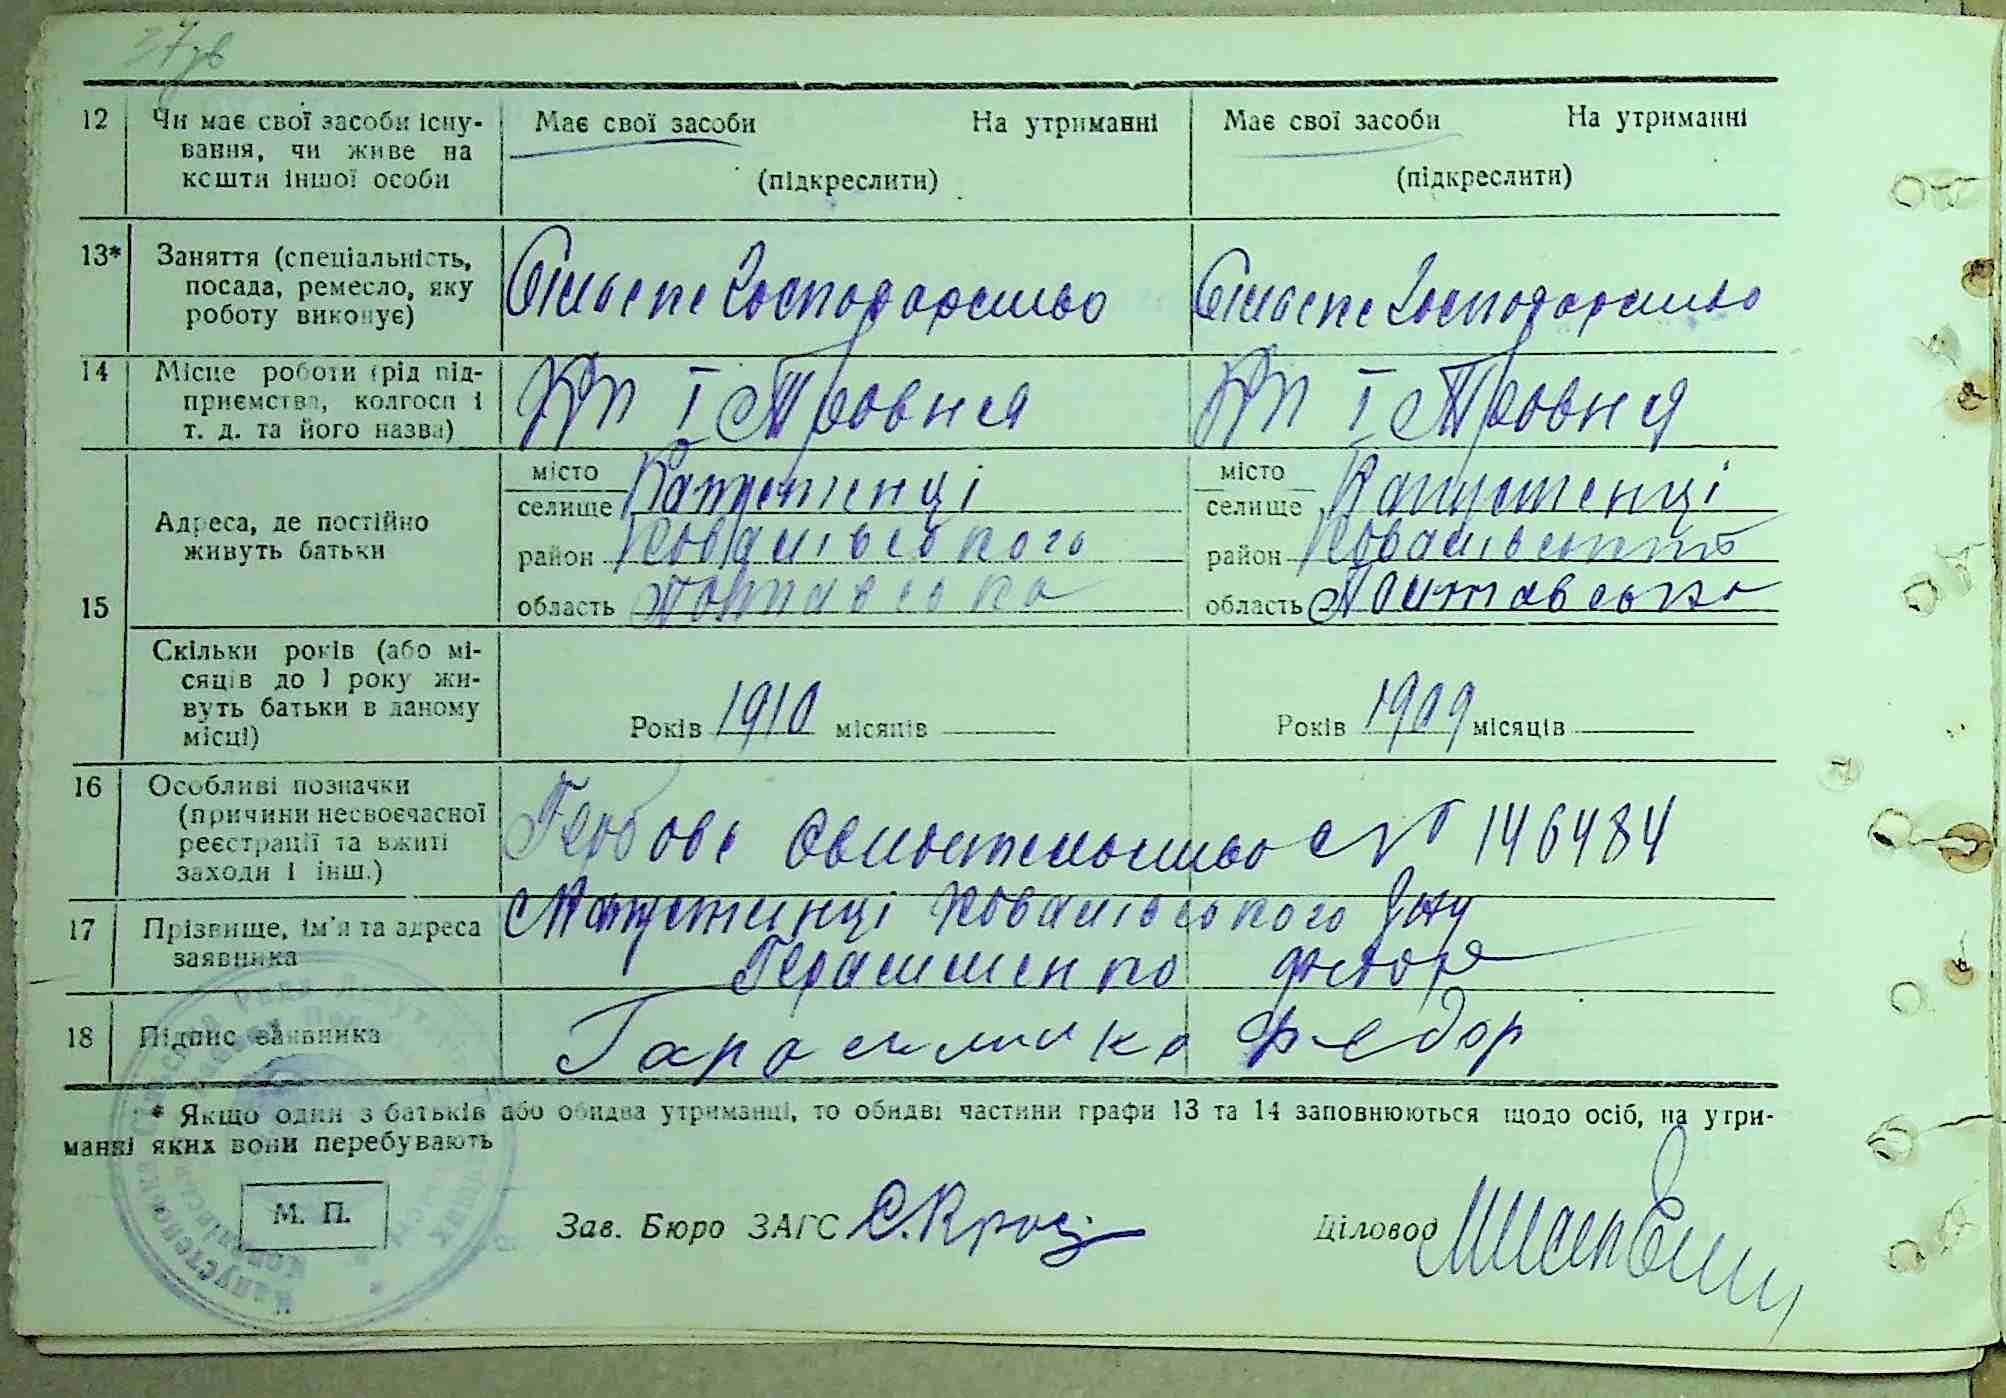 37зв
12 Чи має свої засоби існу- Має свої засоби На утриманні Має свої засоби На утриманні
вання, чи живе на
кошти іншої особи (підкреслити) (підкреслити)
13* Заняття (спеціальність,
посада, ремесло, яку Сільське Господарство Сільське Господарство
роботу виконує)
14 Місце роботи (рід під-
приємства, колгосп і КП 1 Травня КП 1 Травня
т. д. та його назва)
місто Капустенці місто Капустенці
селище селище
Адреса, де постійно
живуть батьки район Ковалівського район
15 область Полтавська область Полтавська
Скільки років (або мі-
сяців до 1 року жи-
вуть батьки в даному Років 1910 місяців Років 1909 місяців
місці)
16 Особливі позначки
(причини несвоєчасної
реєстрації та вжиті Гербове свидетельство № 146484
заходи і інш.)
17 Прізвище, ім'я та адреса Капустинці Ковалівського р-ну
заявника Герасименко
18 Підпис заявника Гарасимика Федор
* Якщо один з батьків або обидва утриманці, то обидві частини графи 13 та 14 заповнюються щодо осіб, на утри-
манні яких вони перебувають
М. П. Зав. Бюро ЗАГС Діловод